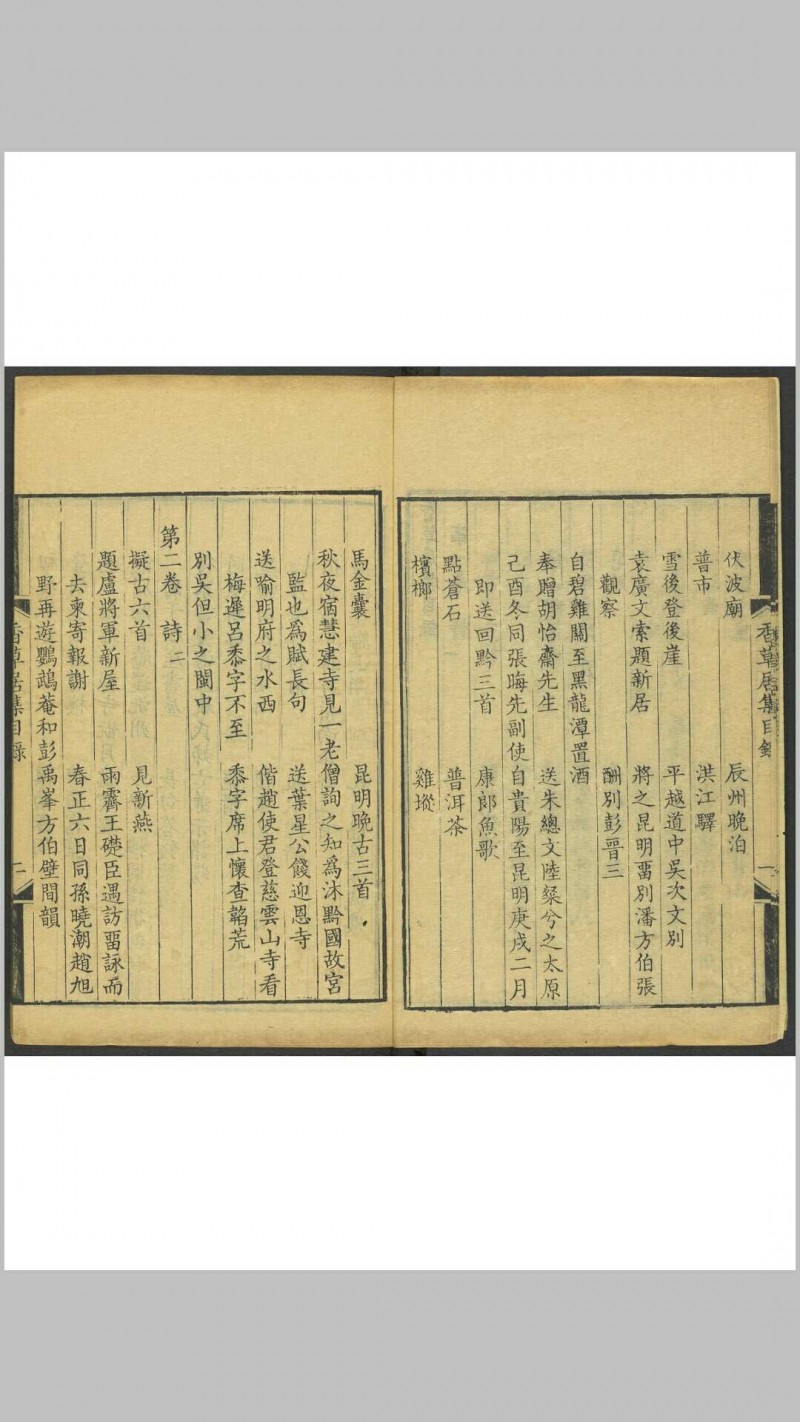 香草居集目錄
一
伏波廟　辰州晚泊
普市　洪江驛
雪後登後崖　平越道中吳次文別
袁廣文索題新居　將之昆明畱別潘方伯張
觀察　酬別彭晉三
自碧雞關至黑龍潭置酒
奉贈胡怡齋先生　送朱總文陸粲兮之太原
己酉冬同張晦先副使自貴陽至昆明庚戌二月
即送回黔三首　康郎魚歌
點蒼石　普洱茶
檳榔　雞㙡
馬金囊　昆明晚古三首
秋夜宿慧建寺見一老僧詢之知為沐黔國故宮
監也為賦長句　送葉星公餞迎恩寺
送喻明府之水西　偕趙使君登慈雲山寺看
梅遲呂黍字不至　黍字席上懷查韜荒
別吳但小之閩中
第二卷　詩二
擬古六首　見新燕
題盧將軍新屋　雨霽王礎臣遇訪畱詠而
去柬寄報謝　春正六日同孫曉潮趙旭
野再遊鸚鵡菴和彭禹峯方伯壁間韻
香草居集目錄